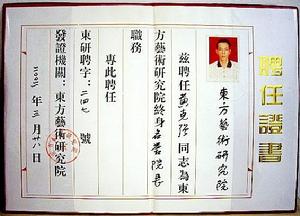 聘任證書
東方藝術研究院
茲聘任黃克强同志為東
方藝術研究院終身名誉院長
職務
專此聘任
東研聘字：二四七號
發證機關：東方藝術研究院
2005年三月廿八日